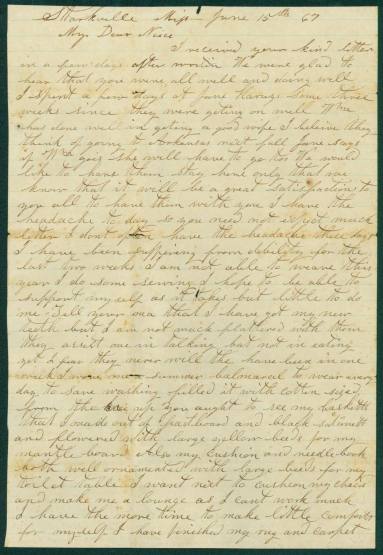 Starkville Miss June 15th 67
My Dear Niece
I received your kind letter
in a few days after We were glad to
hear that you were all well and doing well
I spent a few days at Jane some three
weeks since they were geting on well Wm
has done well in geting a good wife I believe they
think of going to Arkansas next fall Jane says
if Wm goes she will have to go too We would
like to have them stay here only that we
know that it will be a great satisfaction to
you all to have them with you I have the
headache to day so you need not expect much
letter I dont often have the headache these days
I have been suffering from debility for the
last two weeks I am not able to weave this
year I do some sewing I hope to be able to
support myself as it takes but little to do
me Tell your ma that I have got my new
teeth but I am not much flattered with them
they assist me in talking but not in eating
yet I fear they never will the have been in one
week I wove one summer balmoral to wear every
day to save washing filled it with cotton sized
from the up You ought to see my baskett
that I made out of and black
and flowered with large yellow beeds for my
mantle board Also my cushion and needlebook
both well ornamented with large beeds for my
toilet table I want next to cushion my chairs
and make me a lounge as I cant work much
I have the more time to make little comforts
for myself I have finished my rug and carpet